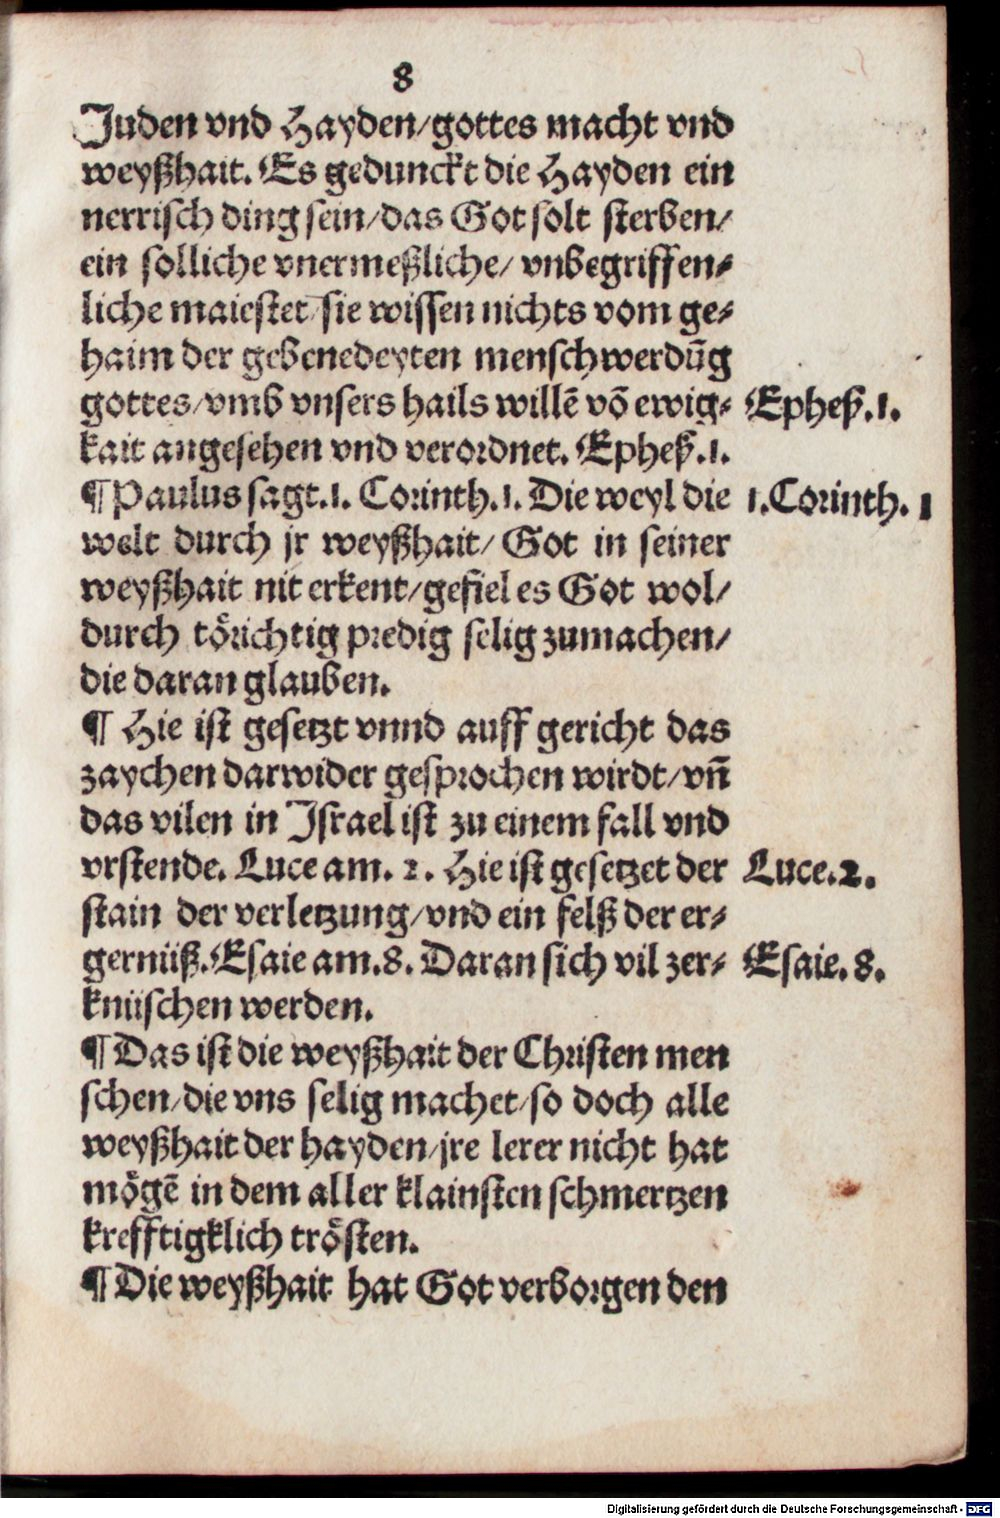 8
Juden vnd Hayden/gottes macht vnd
weyßhait. Es gedunckt die Hayden ein
nerrisch ding sein/das Got solt sterben/
ein solliche vnermeßliche/ vnbegriffen⸗
liche maiestet/sie wissen nichts vom ge⸗
haim der gebenedeyten menschwerdūg
gottes/vmb vnsers hails willē vō ewig⸗ Epheß.1.
kait angesehen vnd verordnet. Epheß.1.
¶Paulus sagt.1. Corinth.1. Die weyl die 1.Corinth. 1
welt durch jr weyßhait/ Got in seiner
weyßhait nit erkent/gefiel es Got wol/
durch törichtig predig selig zumachen/
die daran glauben.
¶ Hie ist gesetzt vnnd auff gericht das
zaychen darwider gesprochen wirdt/vñ
das vilen in Israel ist zu einem fall vnd
vrstende. Luce am. 2. Hie ist gesetzet der Luce.2.
stain der verletzung/vnd ein felß der er⸗
gernüß.Esaie am.8. Daran sich vil zer⸗ Esaie.8.
knüschen werden.
¶Das ist die weyßhait der Christen men
schen/die vns selig machet/so doch alle
weyßhait der hayden/jre lerer nicht hat
mögē in dem aller klainsten schmertzen
krefftigklich trösten.
¶Die weyßhait hat Got verborgen den
Digitalisierung gefördert durch die Deutsche Forschungsgemeinschaft - DFG